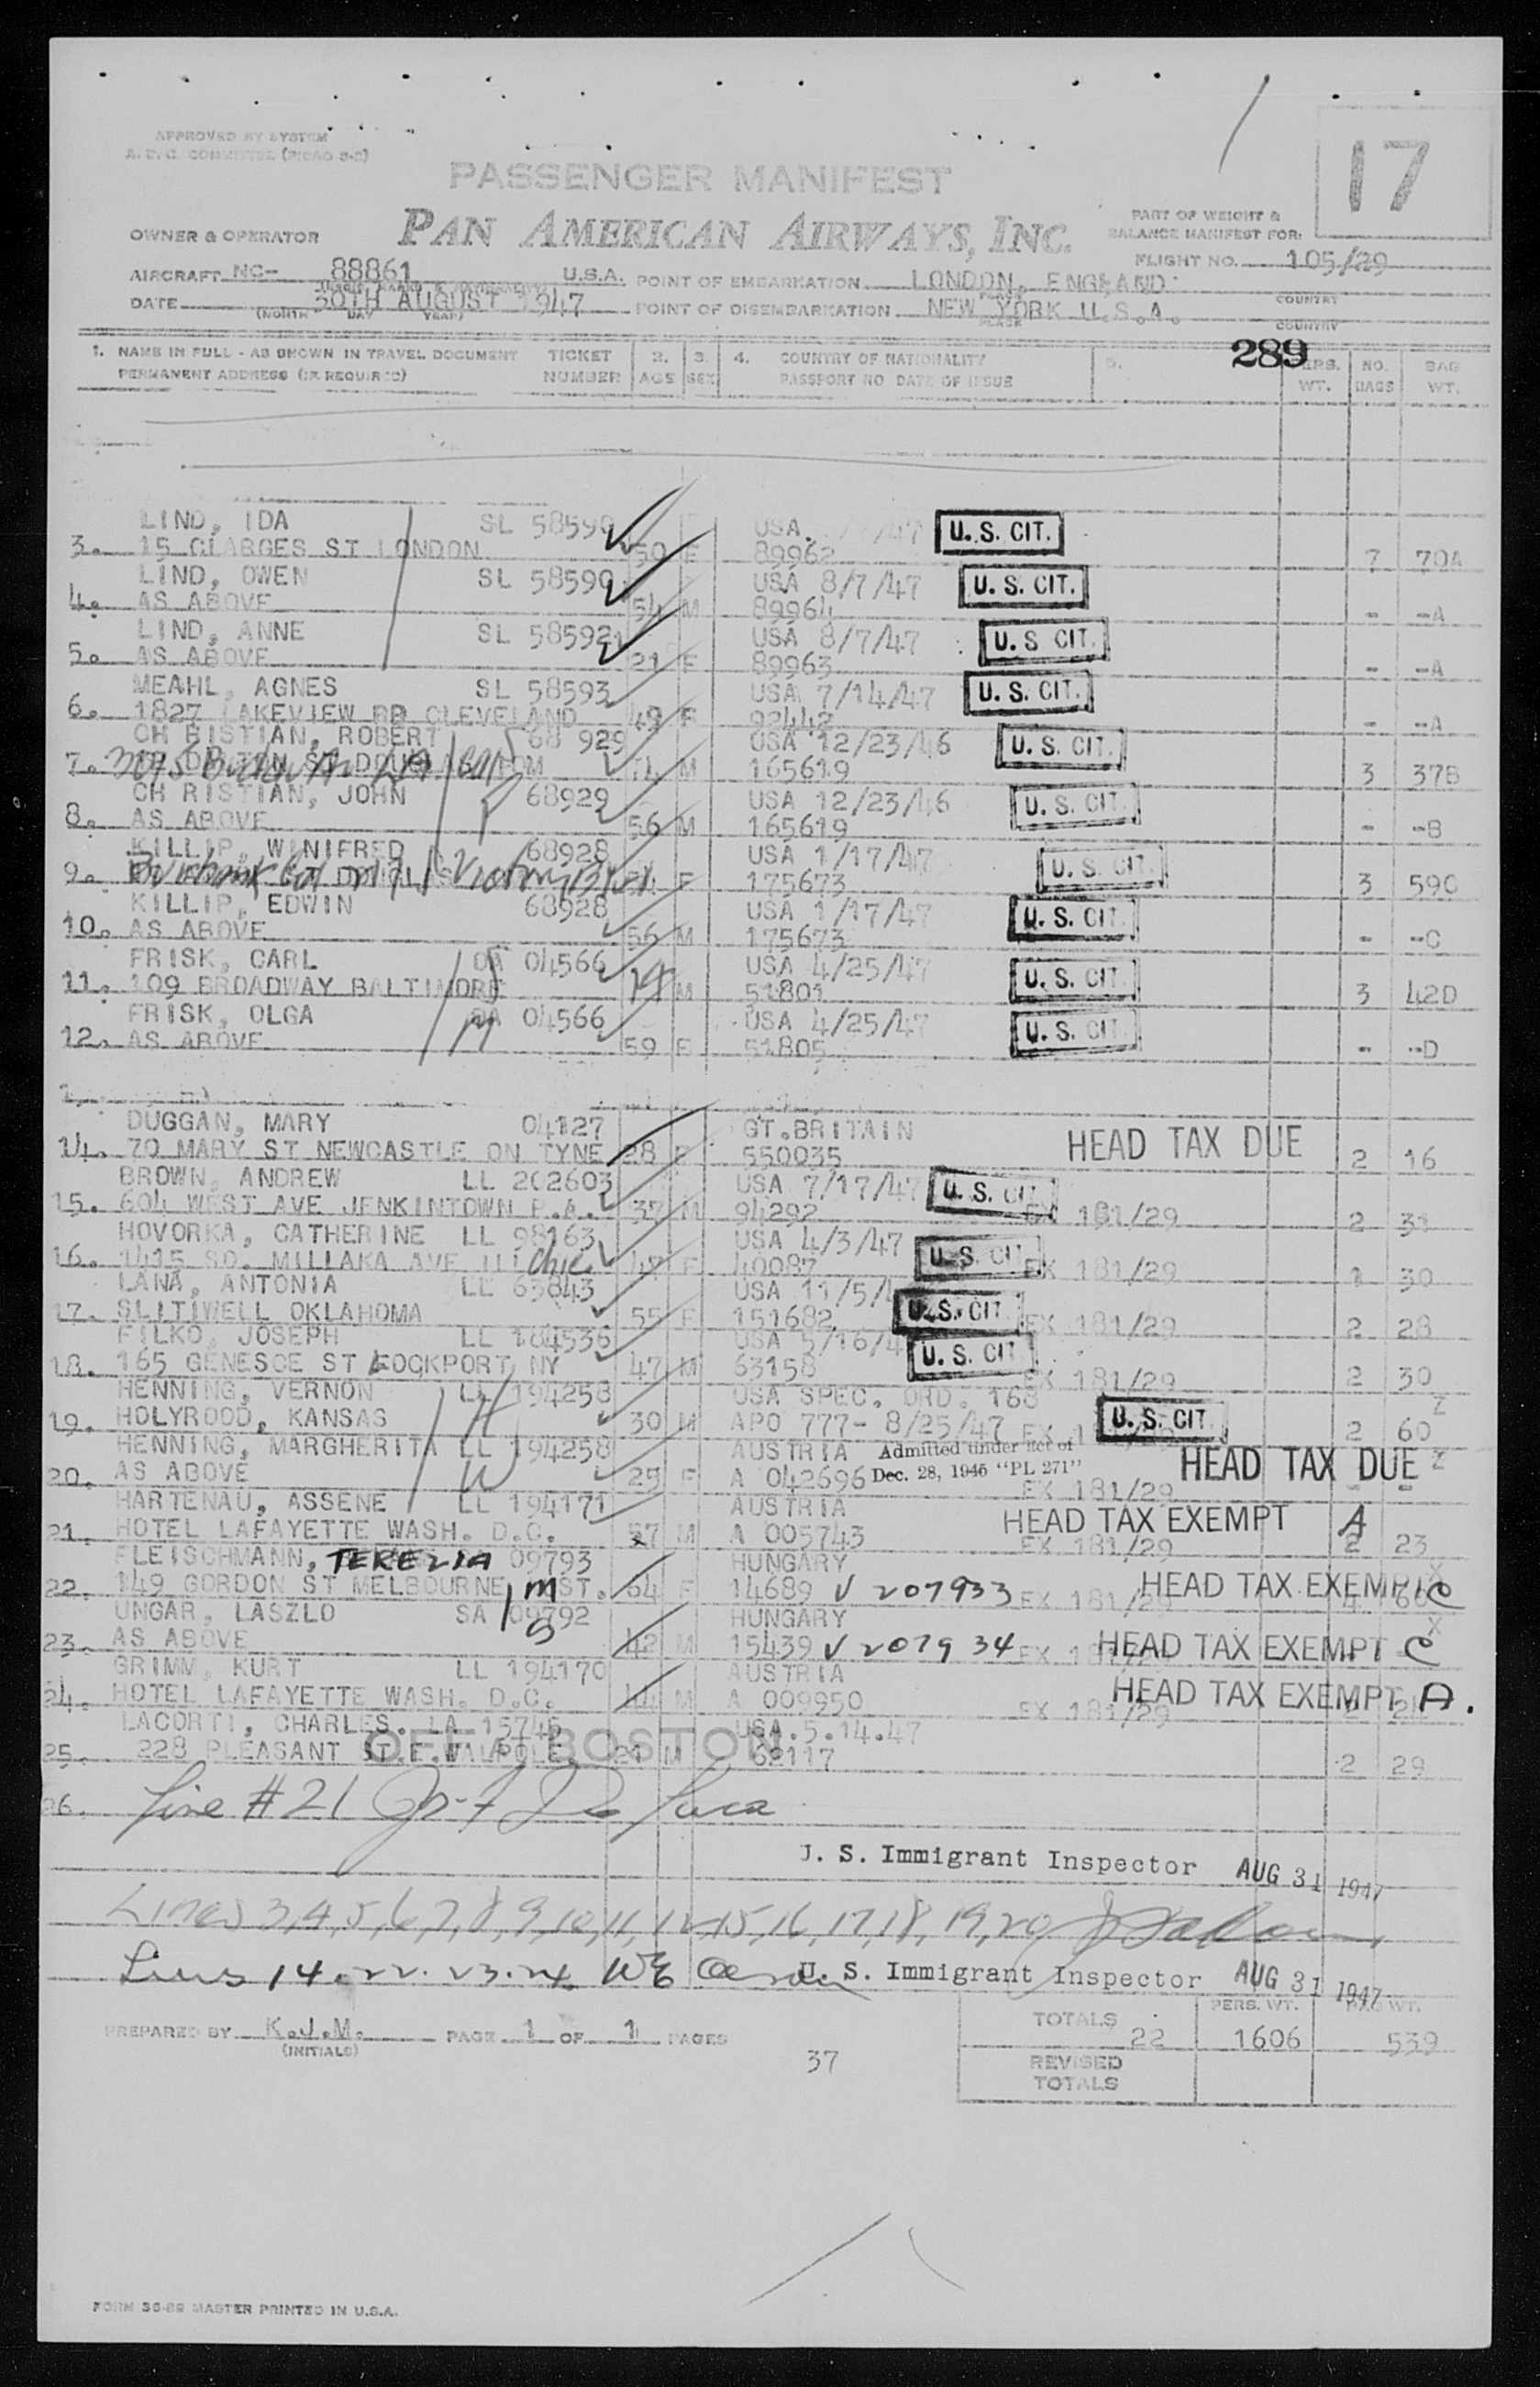 APPROVED BY SYSTEM
PASSENGER MANIFEST
17
PAN AMERICAN AIRWAYS, INC.
PART OF WEIGHT &
BALANCE MANIFEST FOR:
OWNER & OPERATOR
FLIGHT NO. 105/29
AIRCRAFT NC- 88861 U.S.A. POINT OF EMBARKATION LONDON, ENGLAND
DATE 30TH AUGUST 1947 POINT OF DISEMBARKATION NEW YORK U.S.A.
(MONTH DAY YEAR) PLACE COUNTRY
289
1. NAME IN FULL - AS SHOWN IN TRAVEL DOCUMENT TICKET 2. 3. 4. COUNTRY OF NATIONALITY 5. PERS. NO. BAG
PERMANENT ADDRESS (IF REQUIRED) NUMBER AGE SEX PASSPORT NO DATE OF ISSUE WT. BAGS WT.
LIND, IDA SL 58590 USA. /47 U.S. CIT.
3. 15 CLARGES ST LONDON 50 F 89962 7 70A
LIND, OWEN SL 58590 USA 8/7/47 U.S. CIT.
4. AS ABOVE 54 M 89964 - --A
LIND, ANNE SL 58592 USA 8/7/47 U.S CIT.
5. AS ABOVE 21 F 89963 - --A
MEAHL, AGNES SL 58593 USA 7/14/47 U.S. CIT.
6. 1827 LAKEVIEW RD CLEVELAND 49 F 92442 - --A
CH RISTIAN, ROBERT 68 929 USA 12/23/46 U.S. CIT.
7. M 165619 3 37B
CH RISTIAN, JOHN 68929 USA 12/23/46 U.S. CIT.
8. AS ABOVE 56 M 165619 - --B
KILLIP, WINIFRED 68928 USA 1/17/47 U.S. CIT.
9. F 175673 3 59C
KILLIP, EDWIN 68928 USA 1/17/47 U.S. CIT.
10. AS ABOVE 56 M 175673 - --C
FRISK, CARL 04566 USA 4/25/47 U.S. CIT.
11. 109 BROADWAY BALTIMORE M 51801 3 42D
FRISK, OLGA 04566 USA 4/25/47 U.S. CIT.
12. AS ABOVE 59 F 51805 - --D
DUGGAN, MARY 04127 GT.BRITAIN HEAD TAX DUE
14. 70 MARY ST NEWCASTLE ON TYNE 28 F 550035 2 16
BROWN, ANDREW LL 202603 USA 7/17/47 U.S. CIT
15. 604 WEST AVE JENKINTOWN P.A. 37 M 94292 EX 181/29 2 31
HOVORKA, CATHERINE LL 98163 USA 4/3/47 U.S. CIT
16. 1415 SO. MILLAKA AVE ILL Chic. 47 F 40087 EX 181/29 1 30
LANA, ANTONIA LL 63843 USA 11/5/4 U.S. CIT
17. SLITIWELL OKLAHOMA 55 F 151682 EX 181/29 2 28
FILKO, JOSEPH LL 184536 USA 5/16/4 U.S. CIT
18. 165 GENESOE ST LOCKPORT NY 47 M 63158 EX 181/29 2 30
HENNING, VERNON LL 194258 USA SPEC. ORD. 168 Z
19. HOLYROOD, KANSAS 30 M APO 777- 8/25/47 EX U.S. CIT. 2 60
HENNING, MARGHERITA LL 194258 AUSTRIA Admitted under act of HEAD TAX DUE Z
20. AS ABOVE 25 F A 042696 Dec. 28, 1945 "PL 271" EX 181/29 - --
HARTENAU, ASSENE LL 194171 AUSTRIA HEAD TAX EXEMPT A
21. HOTEL LAFAYETTE WASH. D.C. 57 M A 005743 EX 181/29 2 23
FLEISCHMANN, TEREZIA 09793 HUNGARY X
22. 149 GORDON ST MELBOURNE ST. 64 F 14689 V 207933 EX 181/29 HEAD TAX EXEMPT C
UNGAR, LASZLO SA 09792 HUNGARY X
23. AS ABOVE 42 M 15439 V 207934 EX HEAD TAX EXEMPT C
GRIMM, KURT LL 194170 AUSTRIA
24. HOTEL LAFAYETTE WASH. D.C. 44 M A 009950 EX 181/29 HEAD TAX EXEMPT A.
LACORTI, CHARLES. LA 15746 USA.5.14.47
OFF BOSTON
25. 228 PLEASANT ST.E.WALPOLE. 21 M 62117 2 29
26. Line #21
U. S. Immigrant Inspector AUG 31 1947
Lines 3,4,5,6,7,8,9,10,11,12,15,16,17,18,19,20
Lines 14. 22. 23. 24 U. S. Immigrant Inspector AUG 31 1947
PREPARED BY K.J.M. PAGE 1 OF 1 PAGES
(INITIALS)
PERS. WT. BAG WT.
TOTALS 22 1606 539
37
REVISED
TOTALS
FORM 36-89 MASTER PRINTED IN U.S.A.